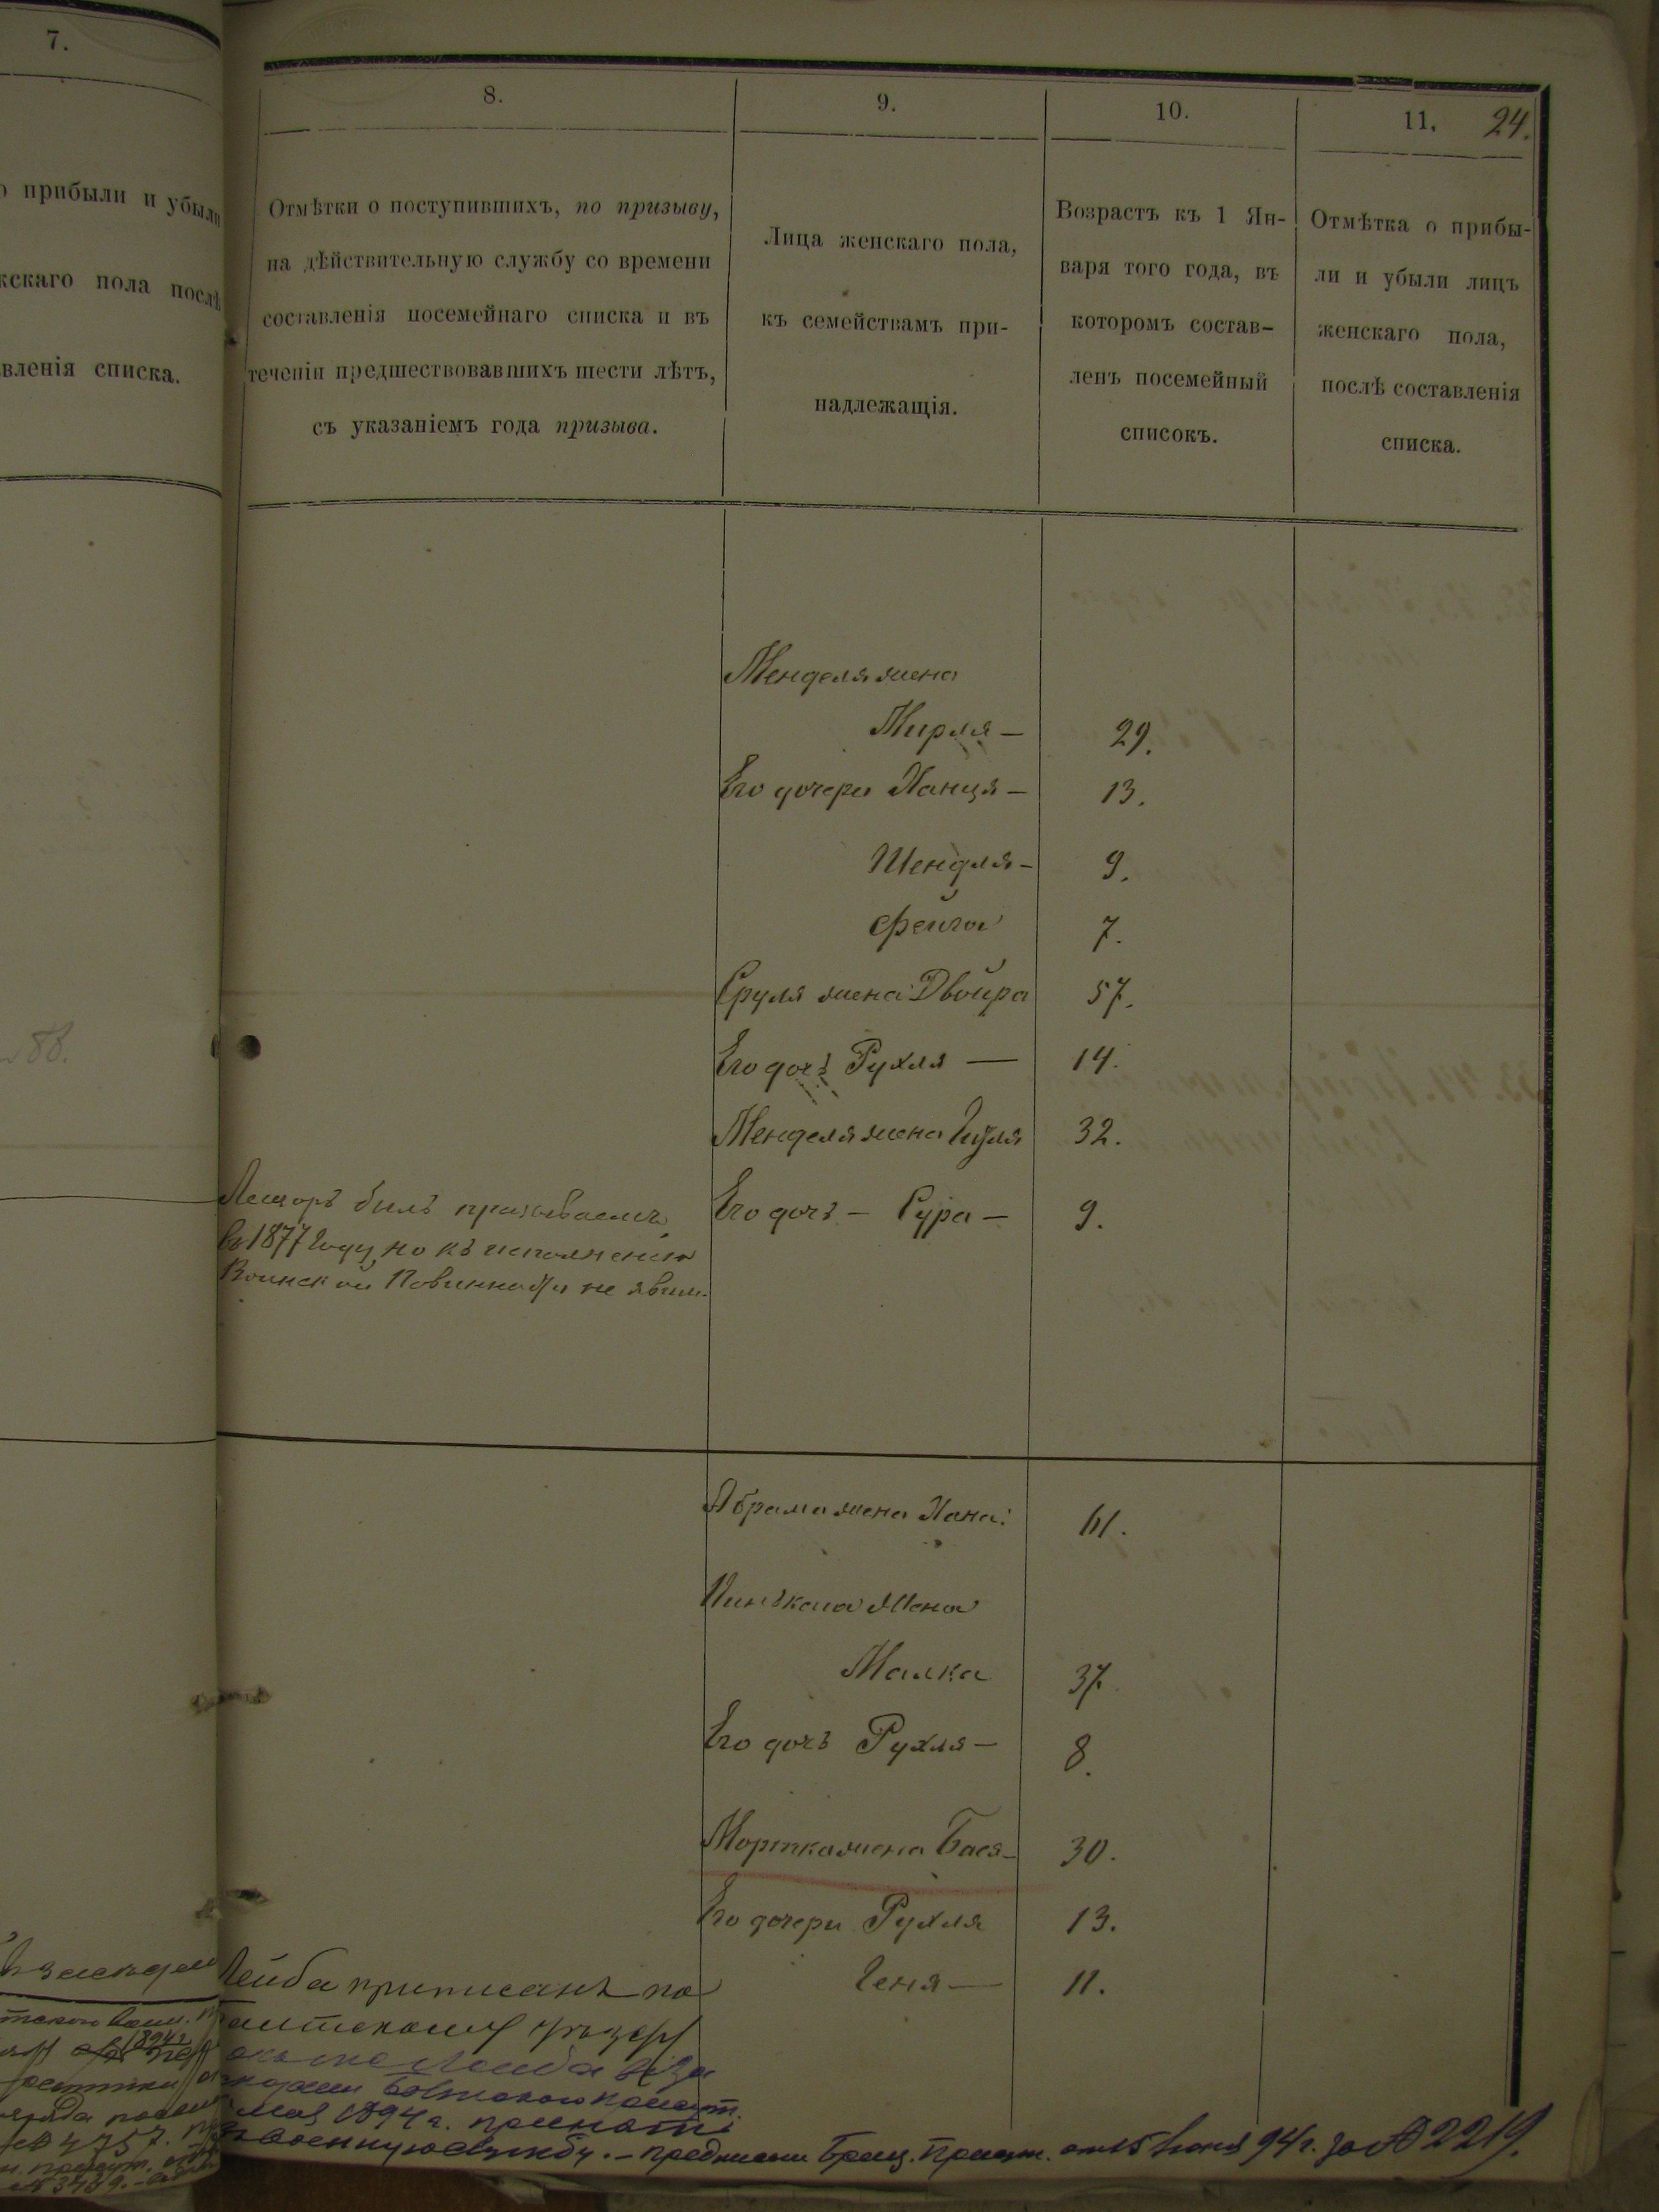 7.
8.
9.
10.
11.
24.
прибыли и убыли
жскаго пола послѣ
вленія списка.
Отмѣтки о поступившихъ, по призыву,
на дѣйствительную службу со времени
составленія посемейнаго списка и въ
теченіи предшествовавшихъ шести лѣтъ,
съ указаніемъ года призыва.
Лица женскаго пола,
къ семействамъ при-
надлежащія.
Возрастъ къ 1 Ян-
варя того года, въ
которомъ состав-
ленъ посемейный
списокъ.
Отмѣтка о прибы-
ли и убыли лицъ
женскаго пола,
послѣ составленія
списка.
Менделя жена
Мирля — 29.
Его дочери Ханця — 13.
Шендля — 9.
Фейга 7.
Сруля жена Двойра 57.
Его дочъ Рухля — 14.
Менделя жена 32.
Его дочъ — Сура — 9.
88.
былъ призываемъ
въ 1877 году, но къ исполненію
Воинской Повинности не явил.
Абрама жена Хана. 61.
Пинькаса жена
Малка 37.
Его дочъ Рухля — 8.
Мортка жена Бася — 30.
Его дочери Рухля 13.
Геня — 11.
Лейба приписанъ по
1894 г.
Лейба
мая 1894 г. принятъ
военную службу. — предписан. Брац. Присут. от 15 94 г. за № 2219.
№ 4757.